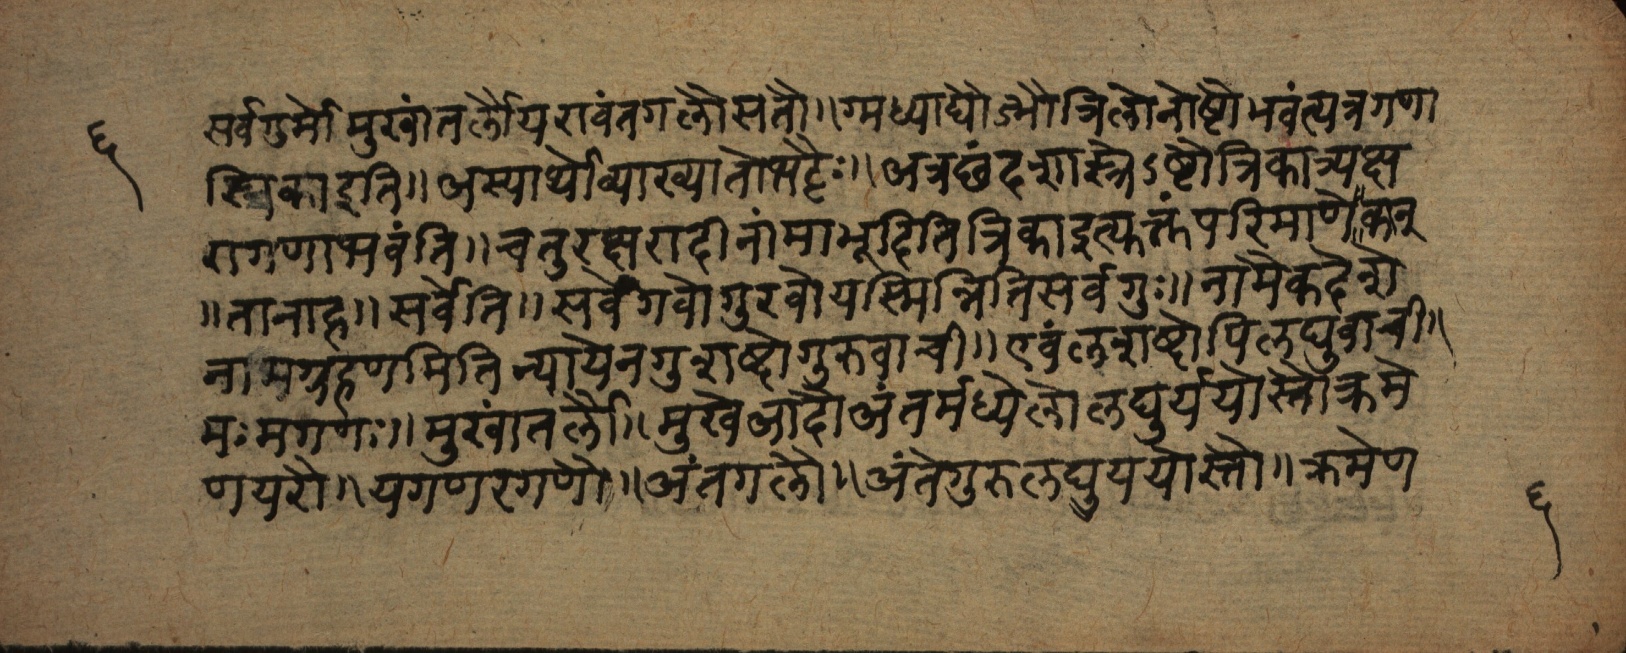 सर्वगुर्मो मुखांतर्लौ यरावंतगलौ सतौ ॥ ग्मध्याद्यौ ज्भौ त्रिलो नोष्टौ भवंत्यत्र गणा
स्त्रिका इति ॥ अस्यार्थो व्याख्यातो भट्टैः ॥ अत्र छंदशास्त्रे ऽष्टौ त्रिकात्र्यक्ष
रा गणा भवंति ॥ चतुरक्षरादीनां मा भूदिति त्रिका इत्युक्तं परिमाणे ॥ कान्
॥ तानाह ॥ सर्वेति ॥ सर्वे गवो गुरवो यस्मिन्निति सर्वगुः ॥ नामैकदेशे
नामग्रहणमिति न्यायेन गुशब्दो गुरुवाची ॥ एवं लशब्दोपि लघुवाची ॥
मः मगणः ॥ मुखांतर्लौ ॥ मुखे आदौ अंतर्मध्ये लो लघुर्ययोस्तौ क्रमे
ण यरौ ॥ यगणरगणौ ॥ अंतगलौ ॥ अंते गुरुलघु ययोस्तौ ॥ क्रमेण
६
६